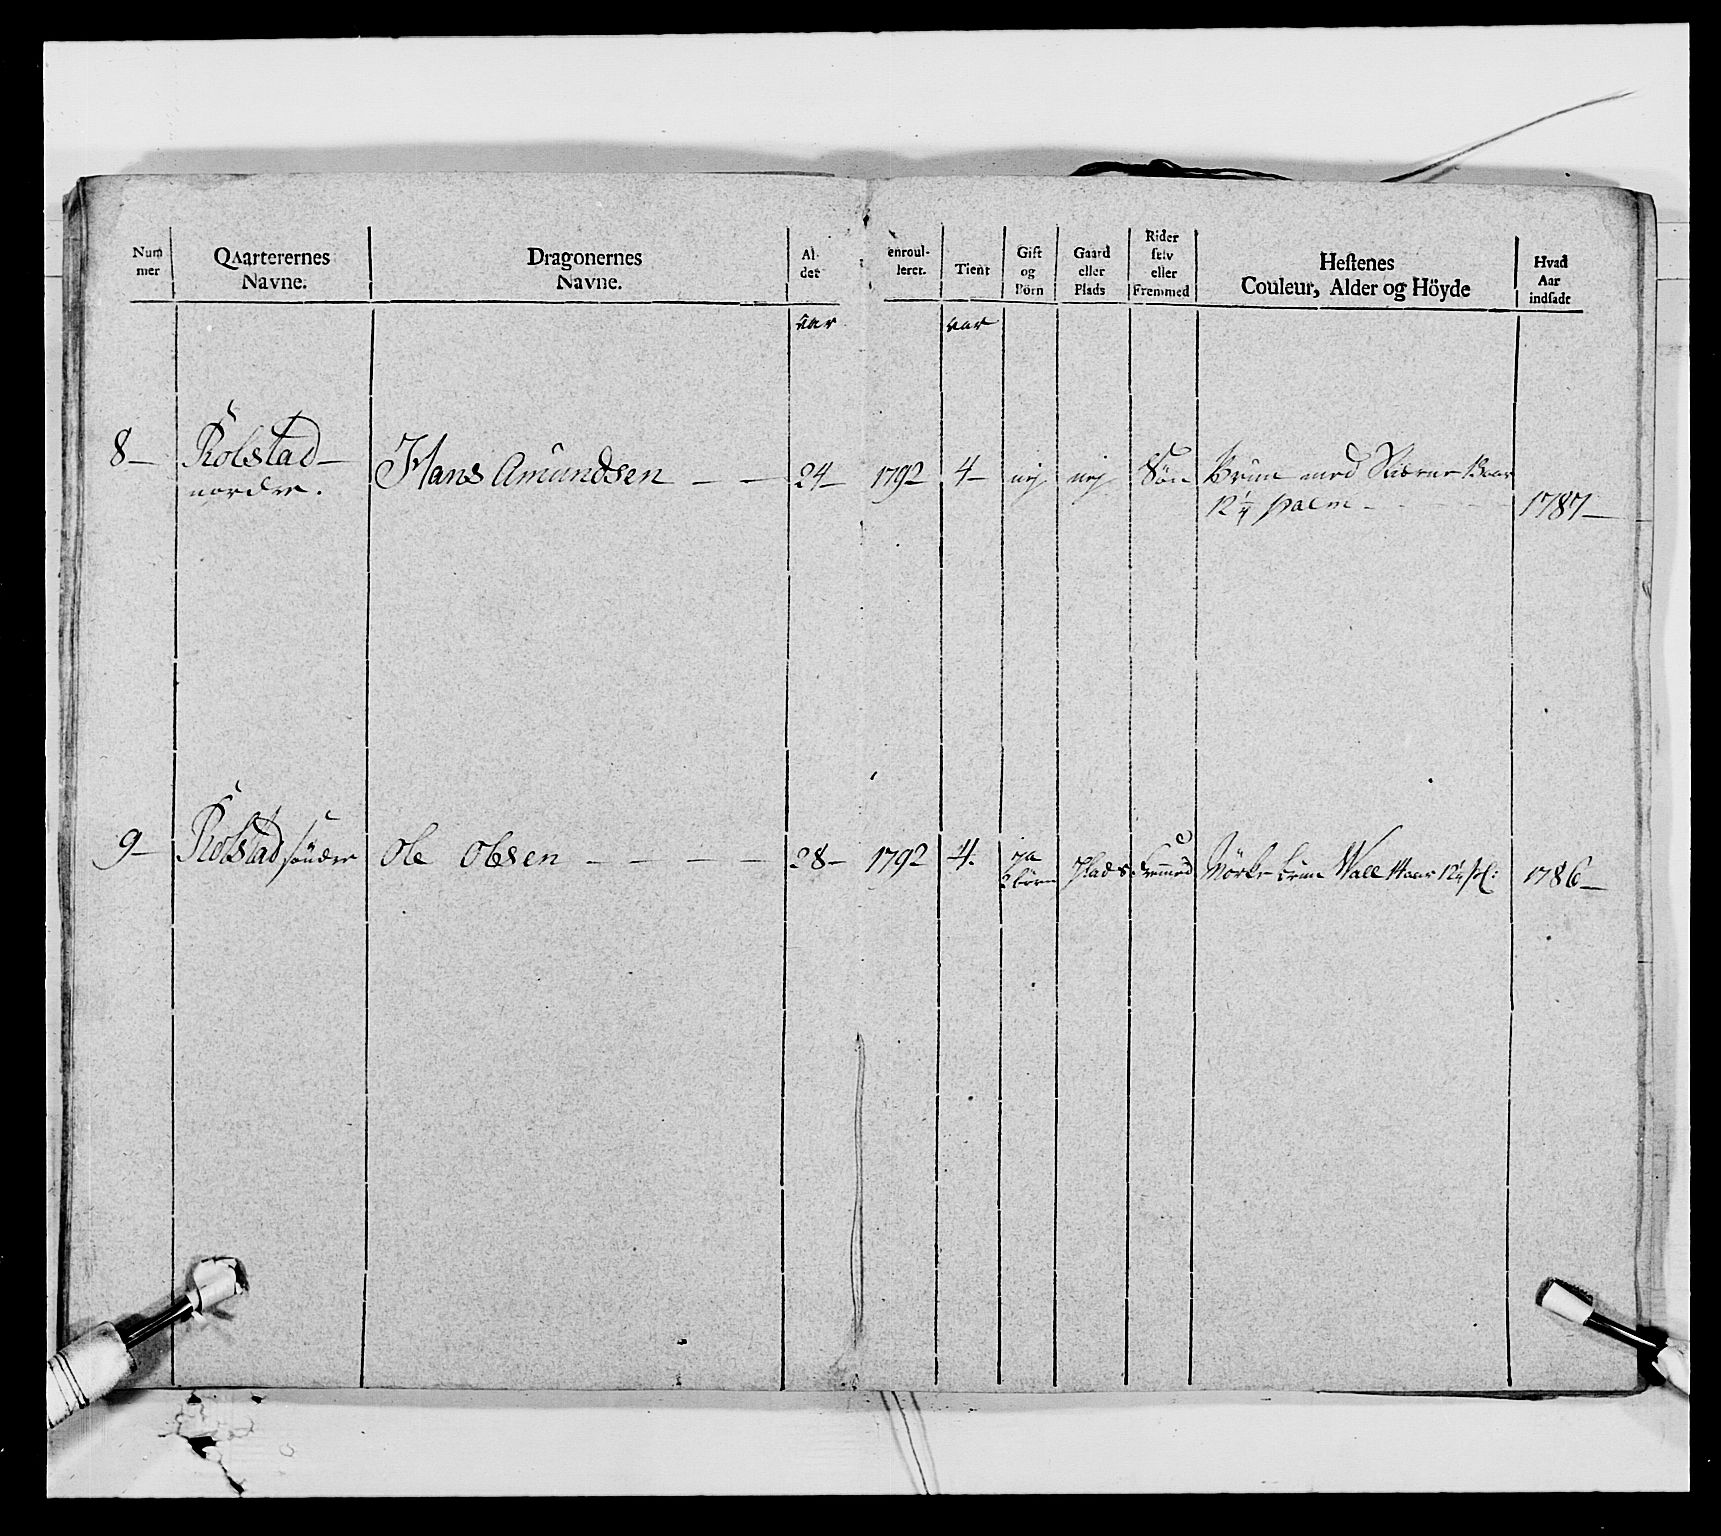 Num mer
Qvarterernes Navne.
Dragonernes Navne.
Al- det
enroul- leret.
Tient
Gift og Börn
Gaard eller Plads
Rider selv eller Fremmed
Hestenes Couleur, Alder og Höyde
Hvad Aar indsadt
aar
aar
8- Rolstad- Hans Amundsen - - 24- 1792 4- nej nej Sön Brun med Stierne 13 aar
nordre. 12 1/4 palm - - - 1787-
9- Rolstad söndre Ole Olsen - - - - 28- 1792 4. ja Plads Fremmed Mörke brun Wall 14 aar 12 1/4 pl: 1786-
2 börn